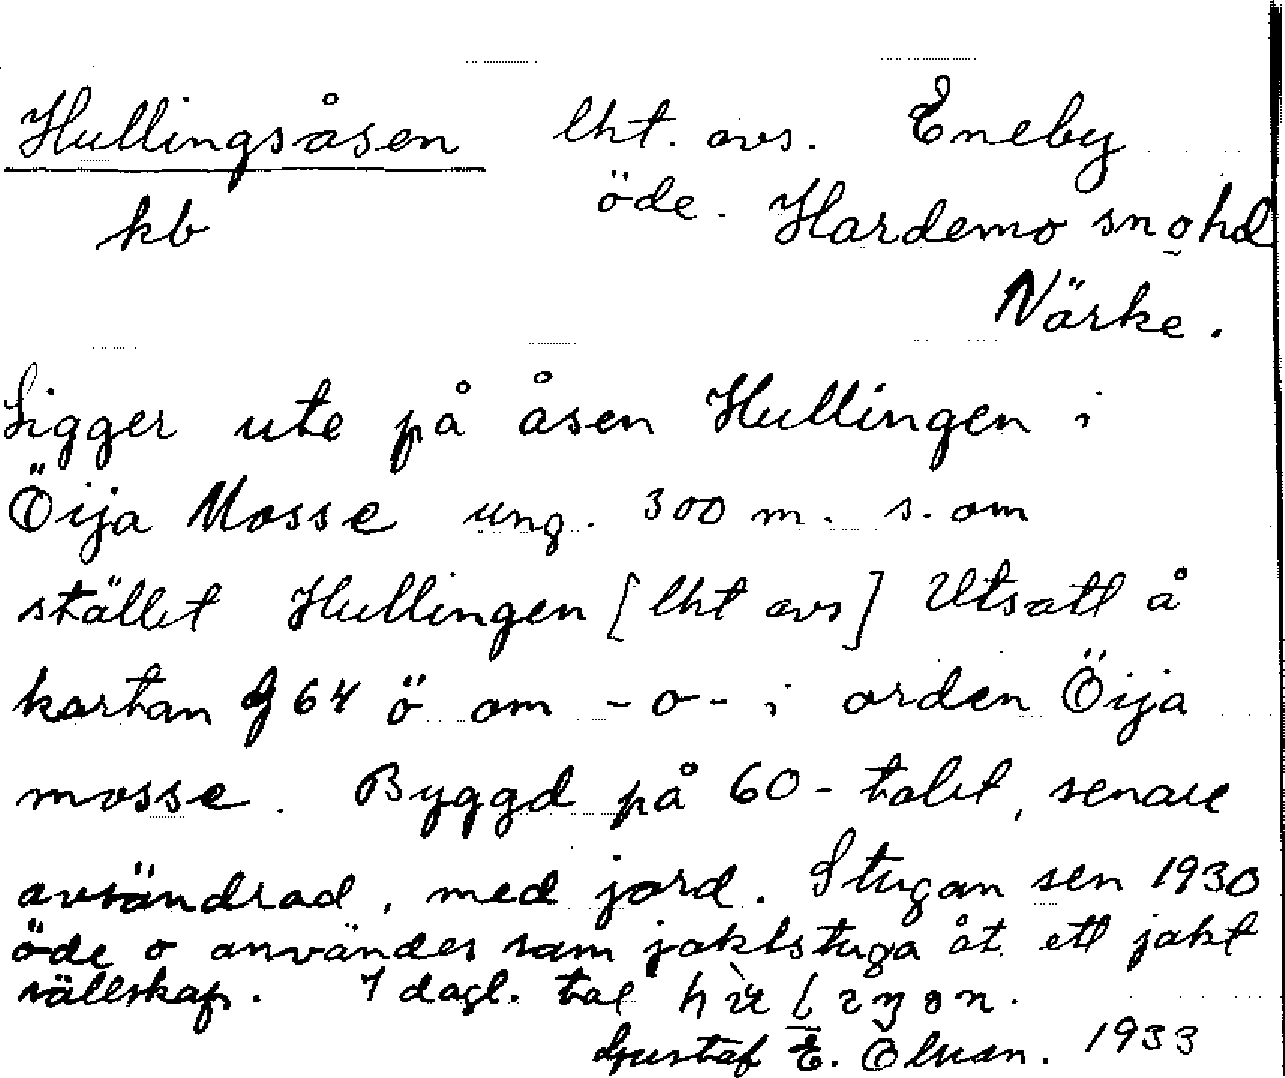 Hullingsåsen lht. avs. Eneby
kb öde. Hardemo sn o hd
Närke.
Ligger ute på åsen Hullingen i
Öija Mosse ung. 300 m. s. om
stället Hullingen [lht avs] Utsatt å
kartan g 64 ö om -o- i orden Öija
mosse. Byggd på 60-talet, senare
avsöndrad, med jord. Stugan sen 1930
öde o användes som jaktstuga åt ett jakt
sällskap. I dagl. tal
Gustaf E. Olsson. 1933